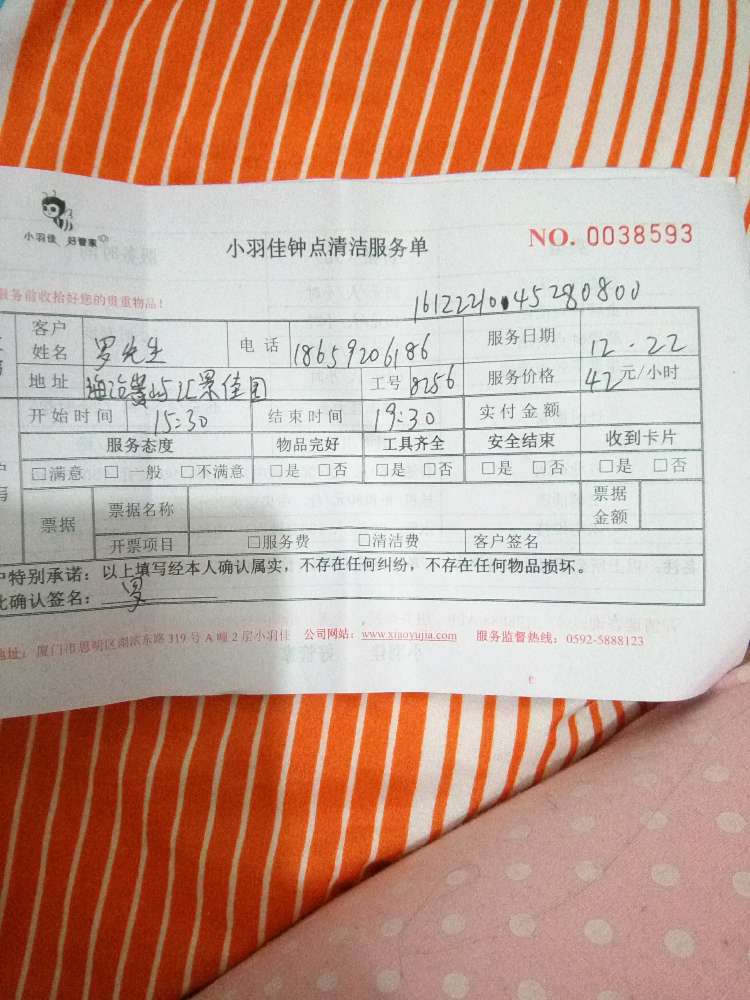 小羽佳 好管家
小羽佳钟点清洁服务单
NO. 0038593
服务前收拾好您的贵重物品!
客户姓名 罗先生 电话 18659206186 服务日期 12.22
地址 工号 8256 服务价格 42元/小时
开始时间 15:30 结束时间 19:30 实付金额
服务态度 物品完好 工具齐全 安全结束 收到卡片
□满意 □一般 □不满意 □是 □否 □是 □否 □是 □否 □是 □否
票据 票据名称 票据金额
开票项目 □服务费 □清洁费 客户签名
户特别承诺:以上填写经本人确认属实,不存在任何纠纷,不存在任何物品损坏。
此确认签名: 罗
地址:厦门市思明区湖滨东路319号A幢2层小羽佳 公司网站:www.xiaoyujia.com 服务监督热线:0592-5888123